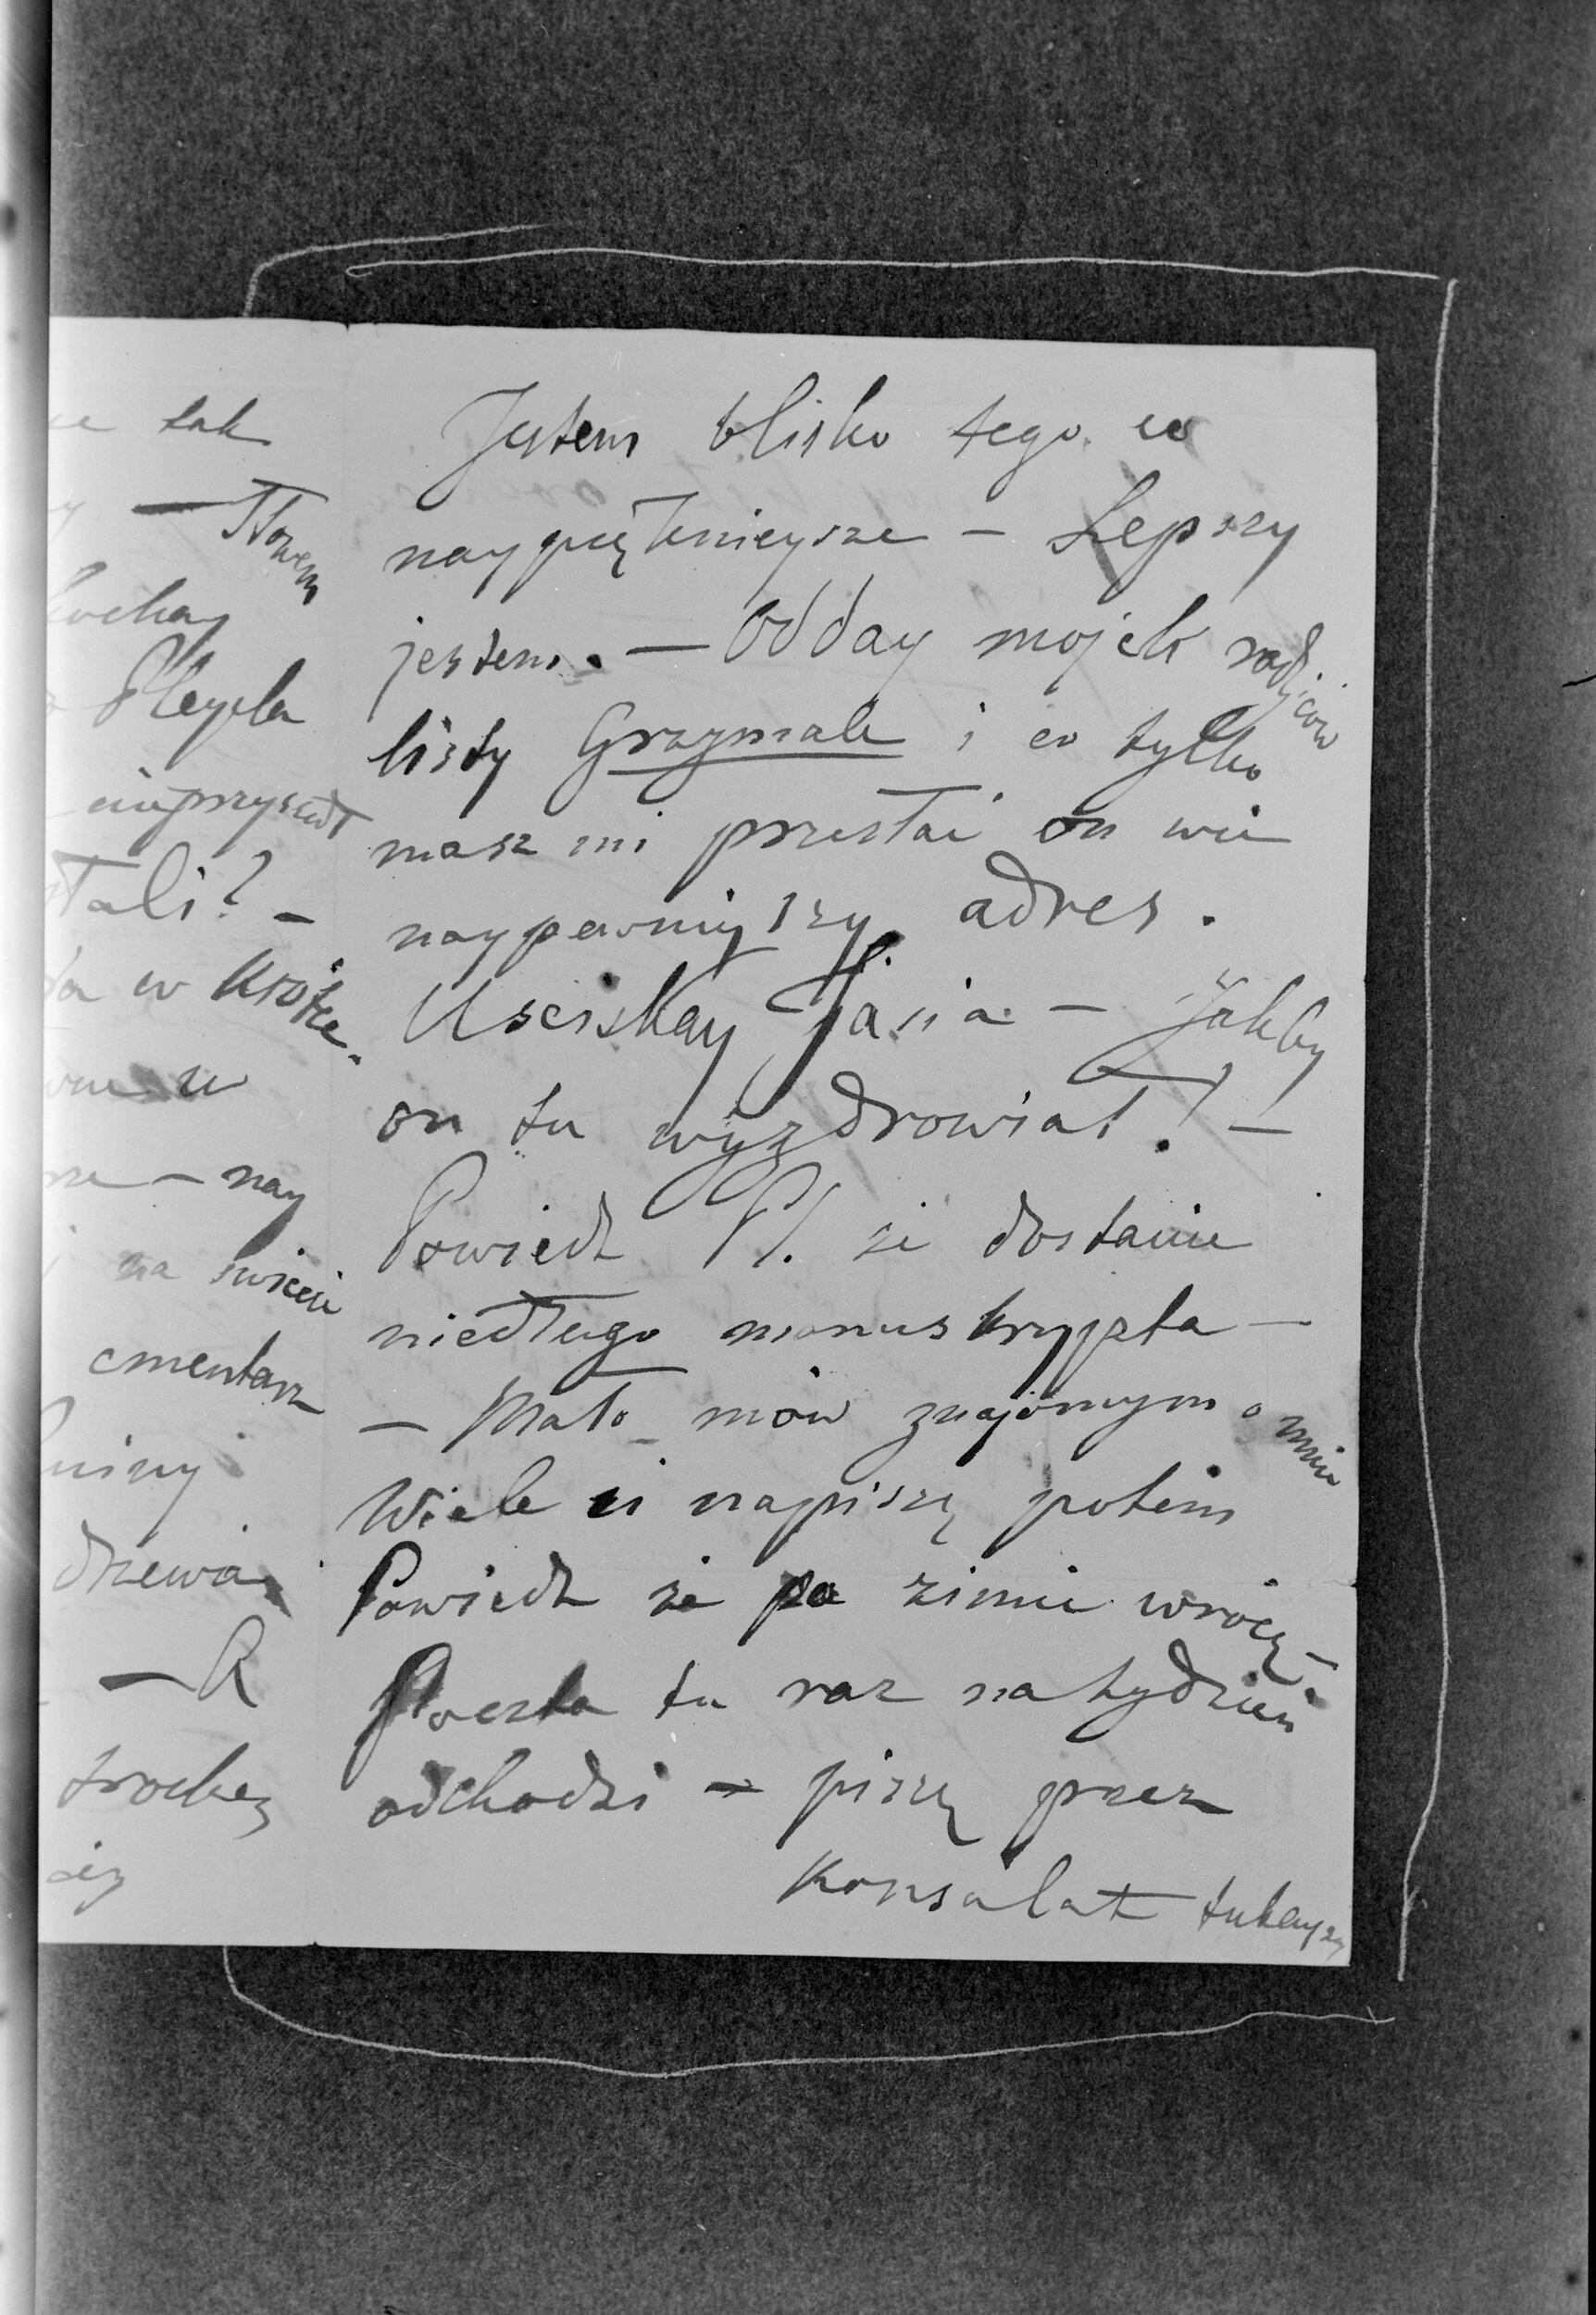 tak
— Słowem
kochay
Pleyela
nieprzyszedł
stali? –
w krótce.
– nay
na świecie
cmentarz
drzewa
— A
trochę
Jestem blisko tego co
naypięknieysze – Lepszy
jestem. — Odday mojch rodziców
listy Grzymale i co tylko
masz mi przesłać on wie
naypewniyszy adres.
Usciskay Jasia – Jakby
on tu wyzdrowiał! –
Powiedz Pl. że dostanie
niedługo manuskrypta –
– Mało mów znajomym o mnie
Wiele ci napiszę potem
Powiedz że po zimie wrócę –
Poczta tu raz na tydzień
odchodzi – piszę przez
Konsulat tuteyszy